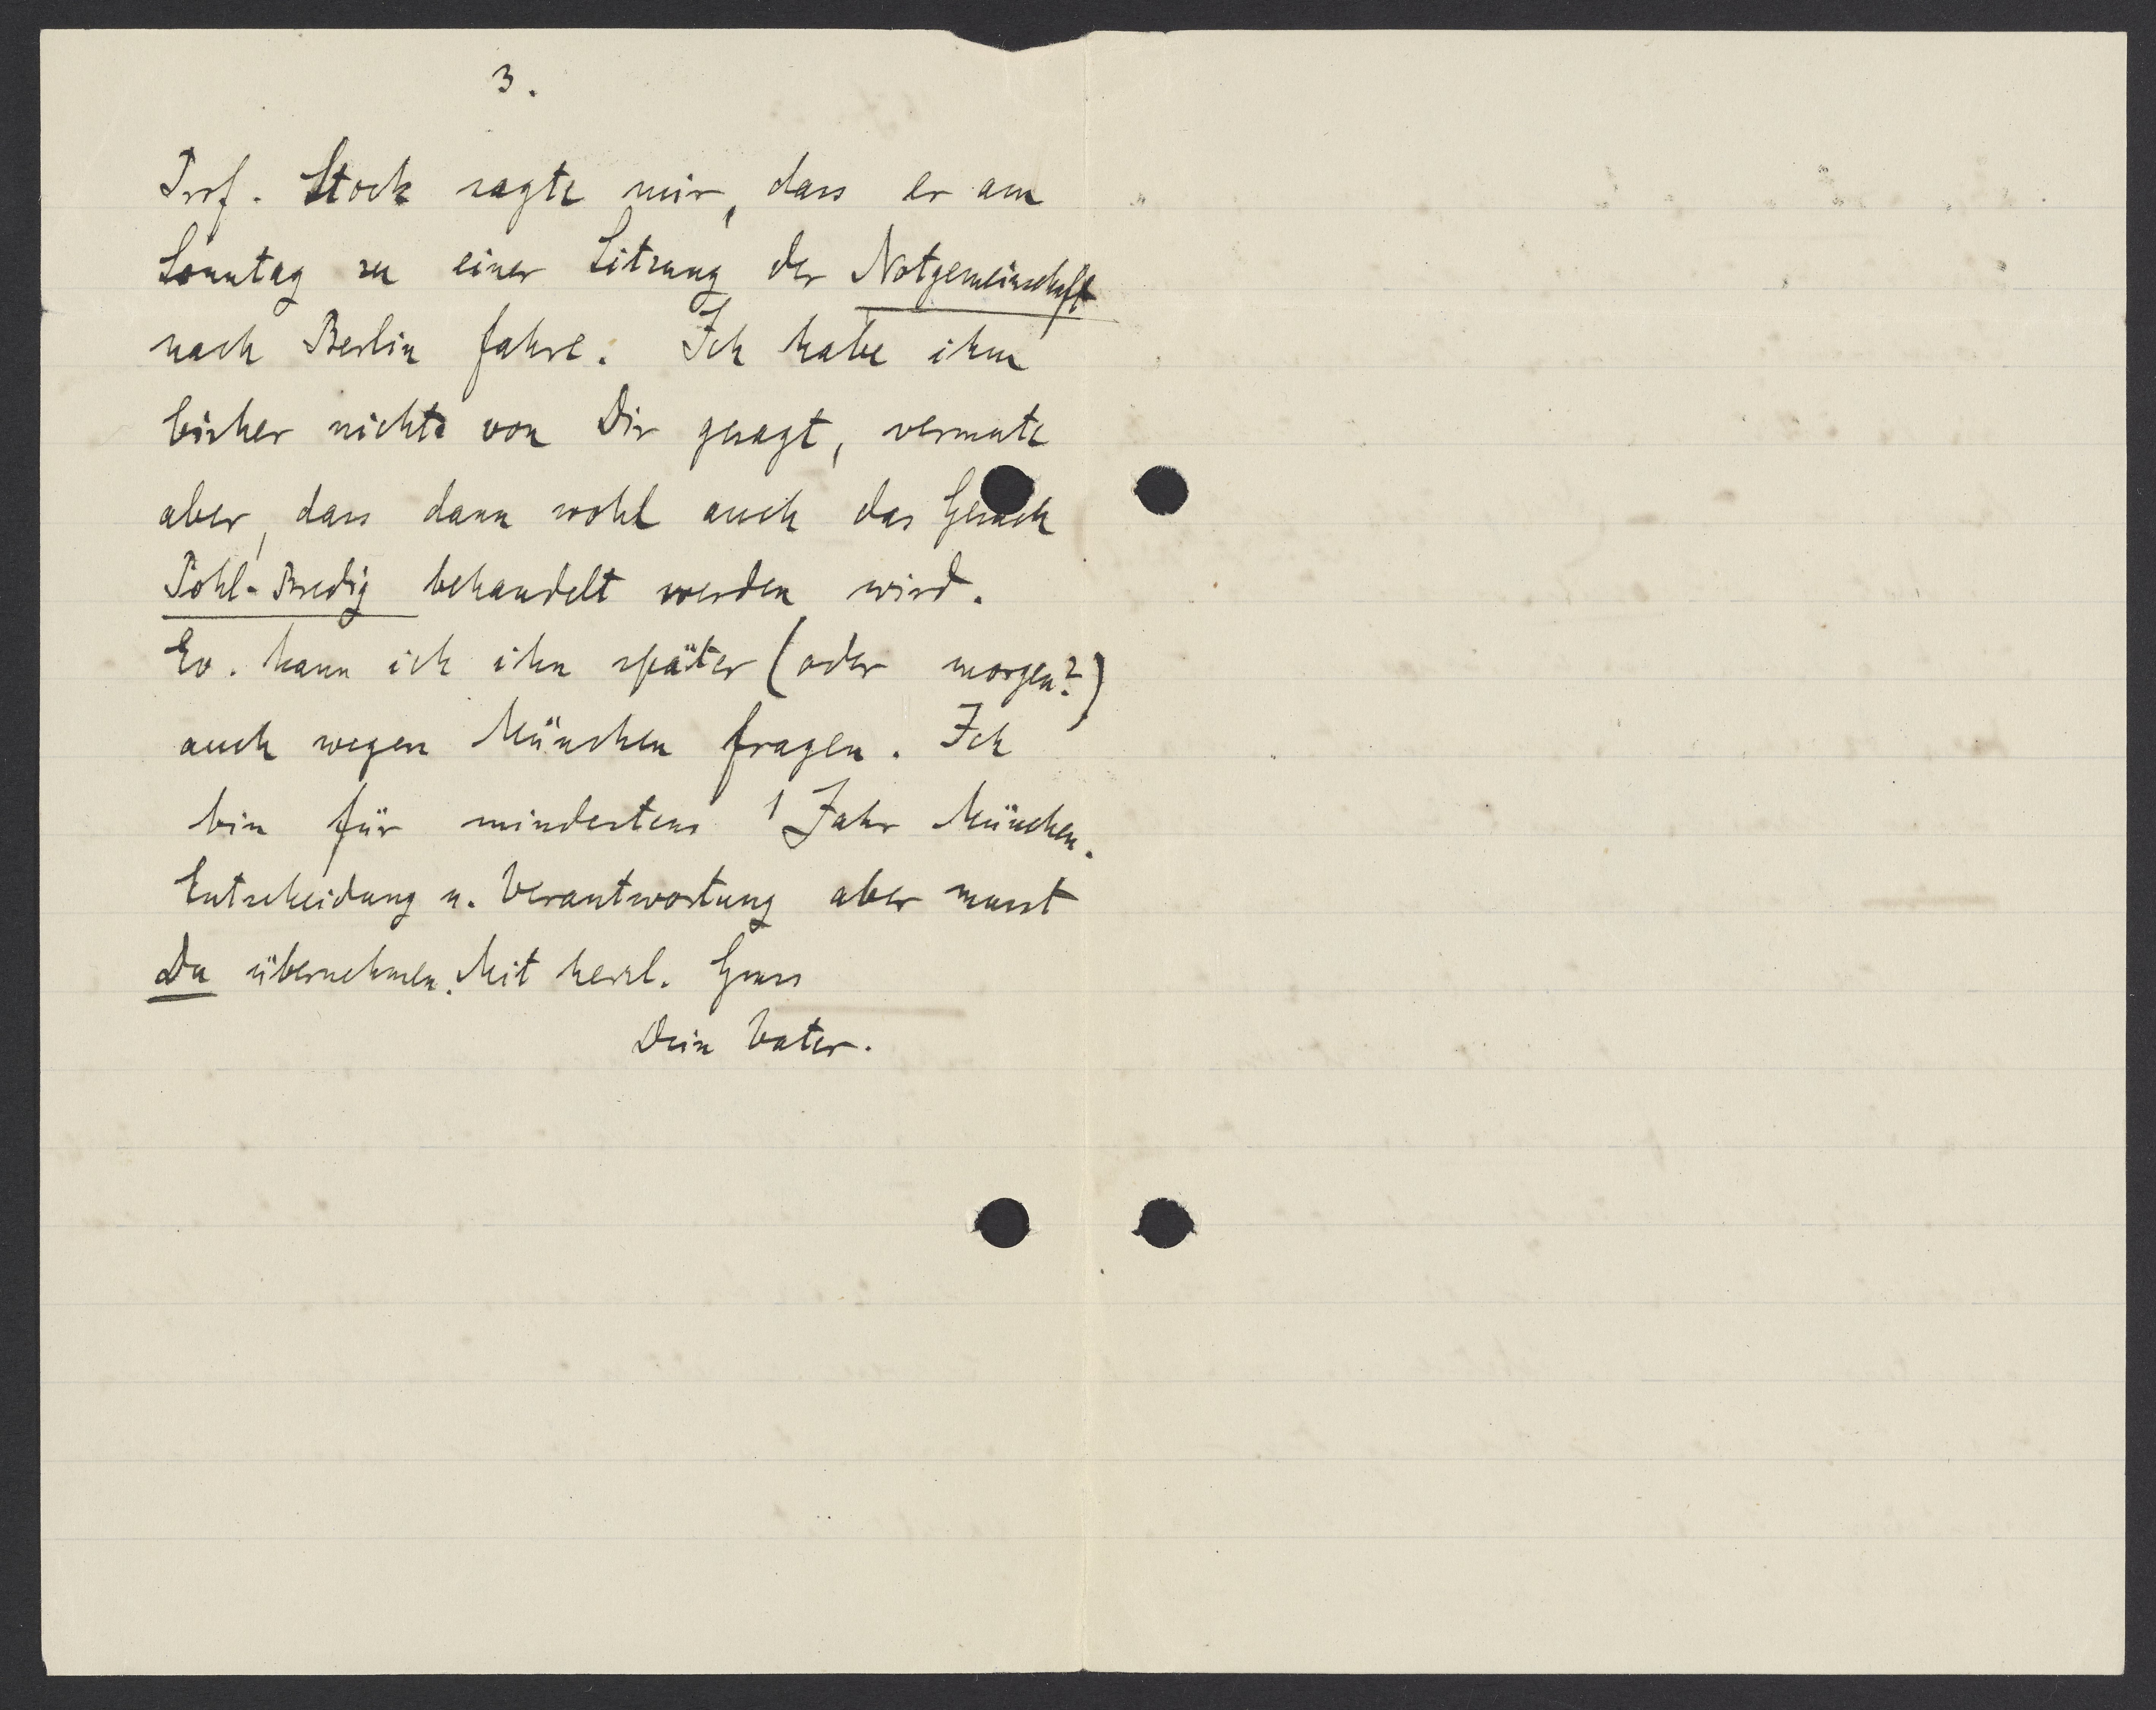 3.
Prof. Stock sagte mir, dass er am
Sonntag zu einer Sitzung der Notgemeinschaft
nach Berlin fahre. Ich habe ihm
bisher nichts von Dir gesagt, vermute
aber, dass dann wohl auch das Gesuch
Pohl-Bredig behandelt werden wird.
Ev. kann ich ihn später (oder morgen?)
auch wegen München fragen. Ich
bin für mindestens 1 Jahr München.
Entscheidung u. Verantwortung aber musst
Du übernehmen. Mit herzl. Gruss
Dein Vater.